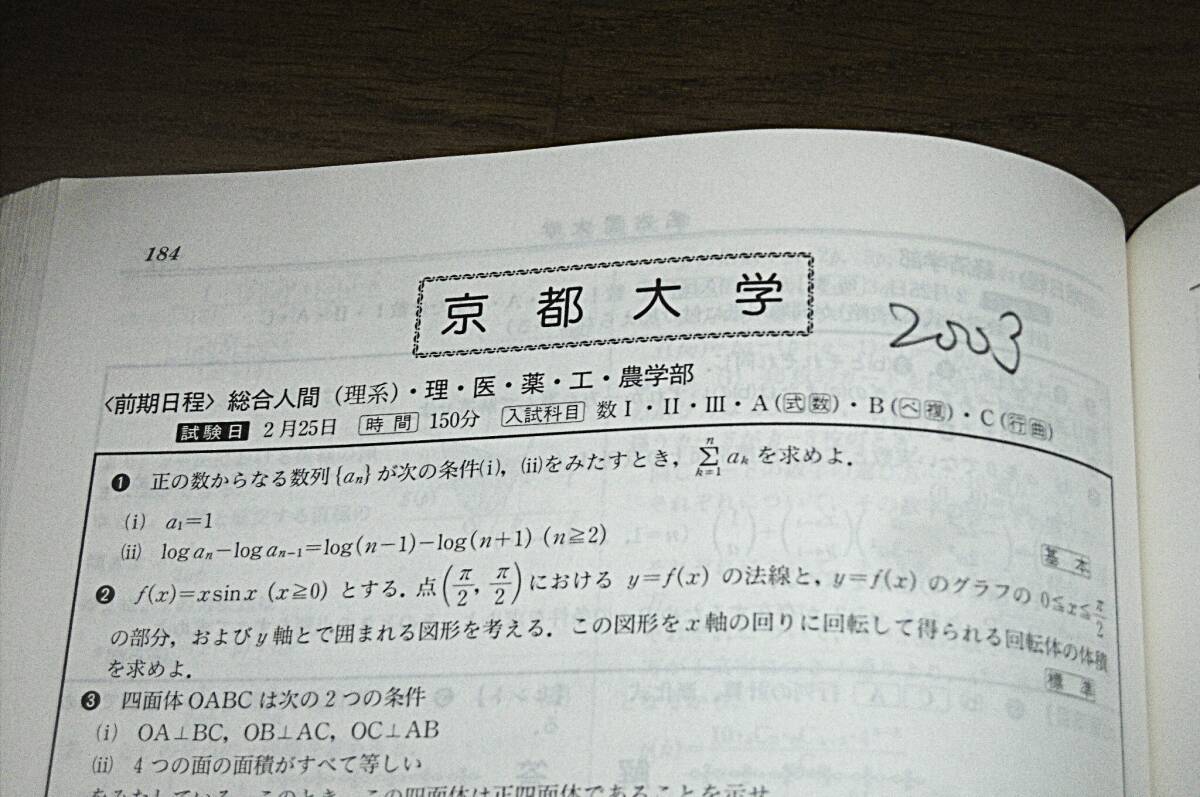 184
京都大学
2003
〈前期日程〉総合人間(理系)・理・医・薬・工・農学部
試験日 2月25日 時間 150分 入試科目 数Ⅰ・Ⅱ・Ⅲ・A(式数)・B(ベ複)・C(行曲)
❶ 正の数からなる数列{aₙ}が次の条件(i), (ii)をみたすとき, ∑ₖ₌₁ⁿ aₖ を求めよ.
(i) a₁=1
(ii) log aₙ−log aₙ₋₁=log(n−1)−log(n+1) (n≧2)
基本
❷ f(x)=x sin x (x≧0) とする. 点(π/2, π/2)における y=f(x) の法線と, y=f(x) のグラフの 0≦x≦π/2
の部分, およびy軸とで囲まれる図形を考える. この図形をx軸の回りに回転して得られる回転体の体積
を求めよ.
標準
❸ 四面体OABCは次の2つの条件
(i) OA⊥BC, OB⊥AC, OC⊥AB
(ii) 4つの面の面積がすべて等しい
をみたしている. このとき, この四面体は正四面体であることを示せ